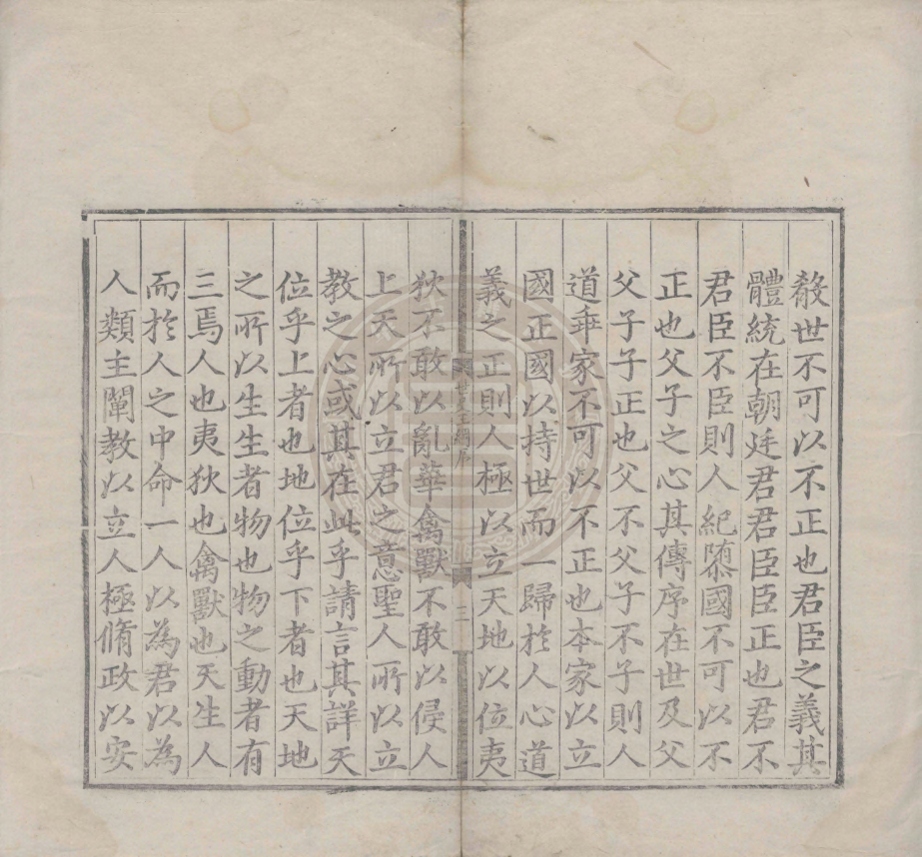 殽世不可以不正也君臣之義其
體統在朝廷君君臣臣正也君不
君臣不臣則人紀隳國不可以不
正也父子之心其傳序在世及父
父子子正也父不父子不子則人
道乖家不可以不正也本家以立
國正國以持世而一歸扵人心道
義之正則人極以立天地以位夷
世史正綱序 二
狄不敢以亂華禽獸不敢以侵人
上天所以立君之意聖人所以立
教之心或其在此乎請言其詳天
位乎上者也地位乎下者也天地
之所以生生者物也物之動者有
三焉人也夷狄也禽獸也天生人
而扵人之中命一人以為君以為
人類主闡教以立人極脩政以安